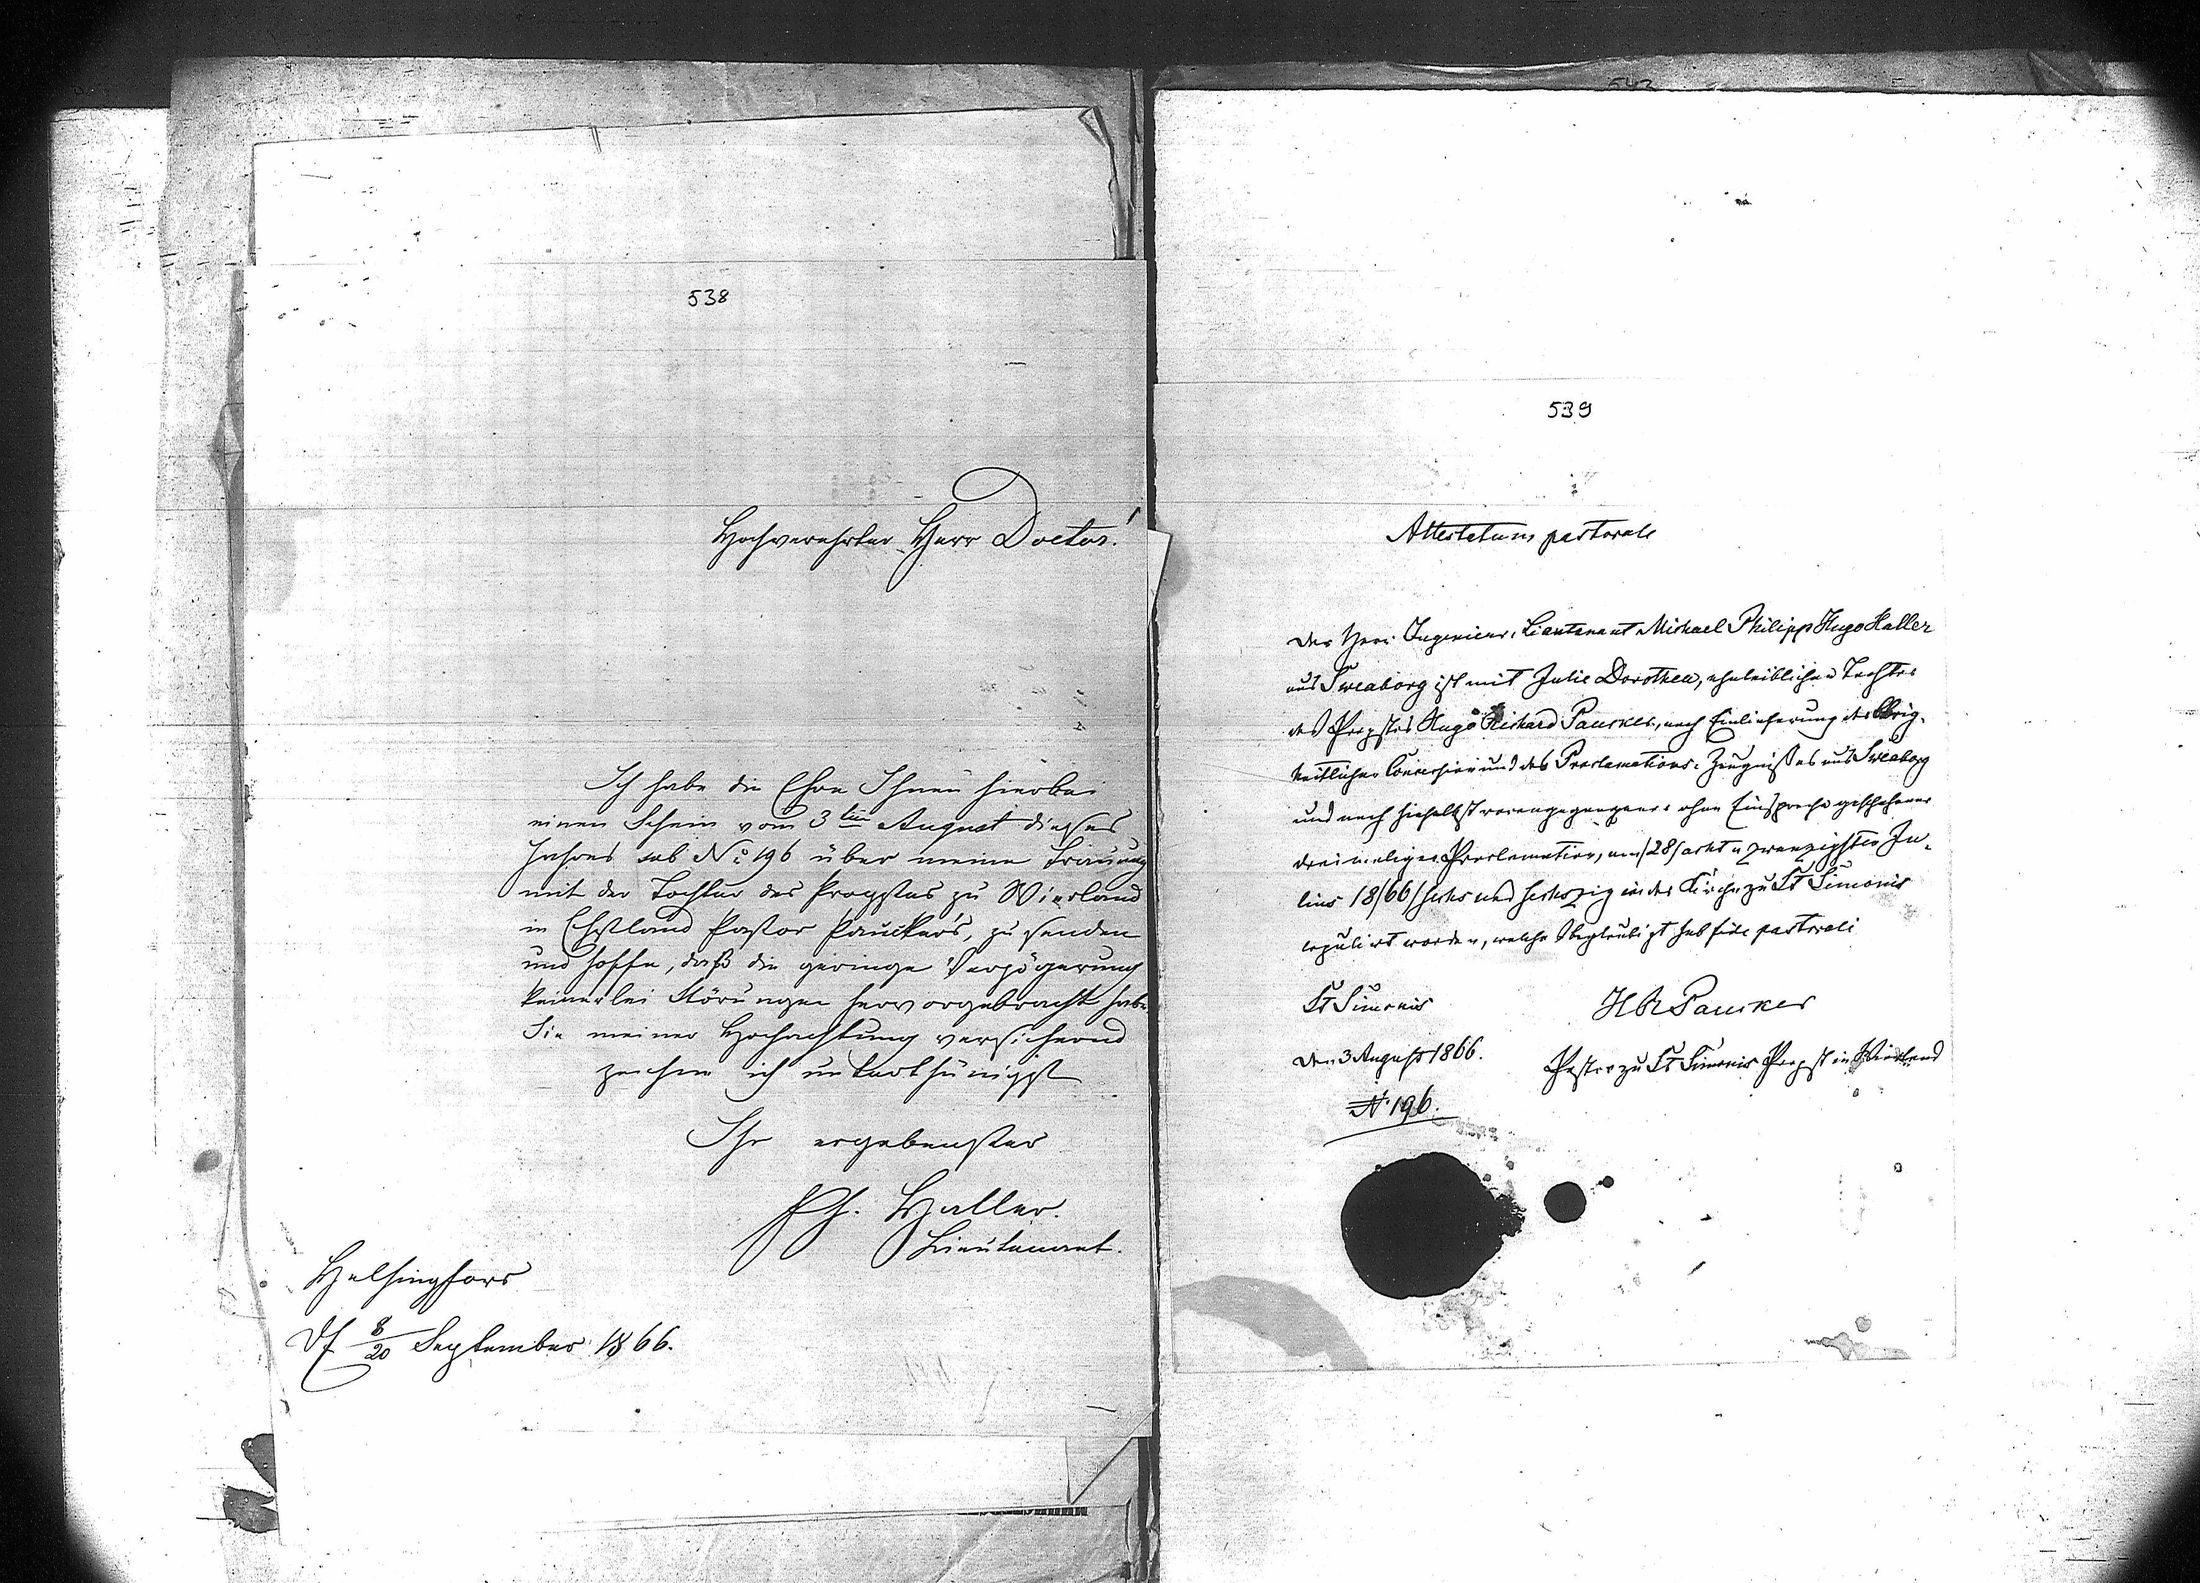 538
Hochverehrter Herr Doctor!
Ich habe die Ehre Ihnen hierbei
einen Schein vom 3ten August dieses
Jahres sub No 196 über meine Trauung
mit der Tochter des Propstes zu Wierland
in Ehstland Pastor Paucker's, zu senden
und hoffe, daß die geringe Verzögerung
keinerlei Störungen hervorgebracht habe.
Sie meiner Hochachtung versichernd
zeichne ich unterthänigst
Ihr ergebenster
Ph. Haller.
Lieutenant.
Helsingfors
8/20 September 1866.
542
539
Attestatum pastorale
Der Herr Ingenieur-Lieutenant Michael Philipp Hugo Haller
aus Sweaborg ist mit Julie Dorothea, eheleiblicher Tochter
des Propstes Hugo Richard Paucker, nach Einlieferung der Obrig-
keitlichen Concession und des Proclamations-Zeugnisses aus Sweaborg
und nach hieselbst vorangegangener ohne Einsprache geschehener
dreimaliger Proclamation, am /28/ acht u zwanzigsten Ju-
lius 18/66/ sechs und sechszig in der Kirche zu St Simonis
copulirt worden, welches beglaubigt sub fide pastorali
St Simonis
H R Paucker
den 3 August 1866.
Pastor zu St Simonis Propst in Wierland
No 196.